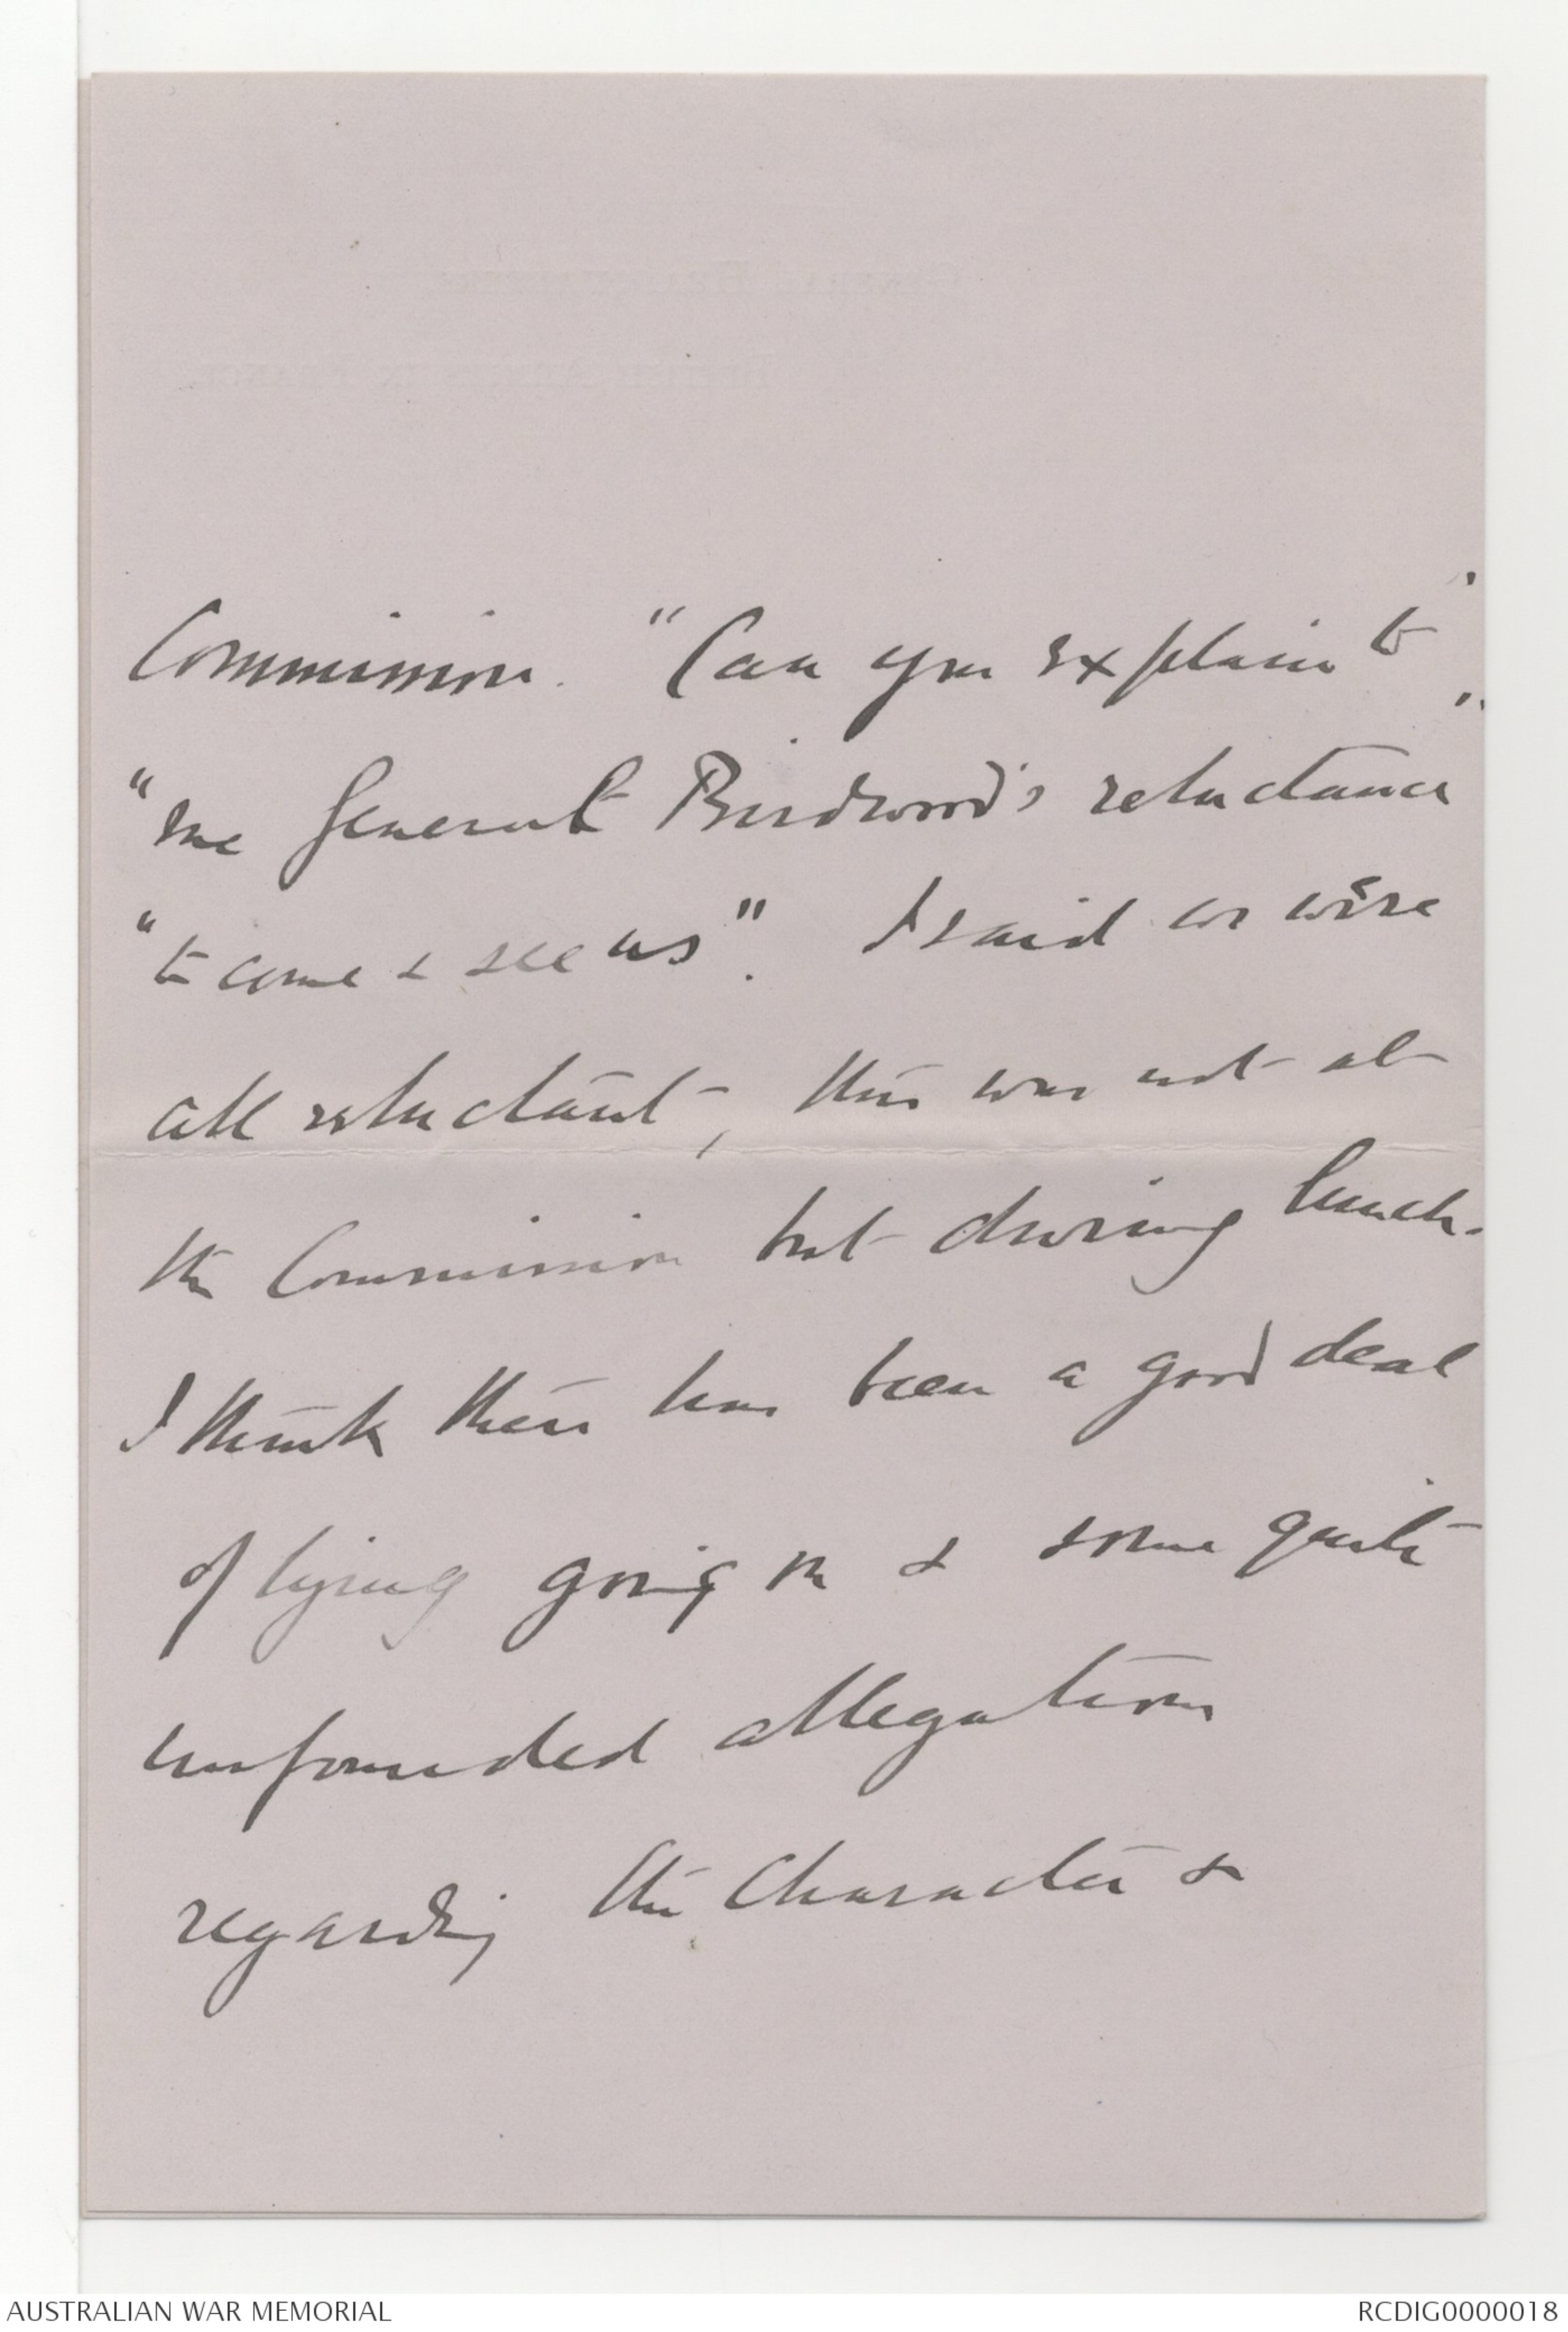 Commission. "Can you explain to"
"me General Birdwood's reluctance"
"to come & see us". I said we were
all reluctant, this was not at
the Commission but during lunch.
I think there has been a good deal
of lying going on & some quite
unfounded allegations
regarding the character &
AUSTRALIAN WAR MEMORIAL
RCDIG0000018